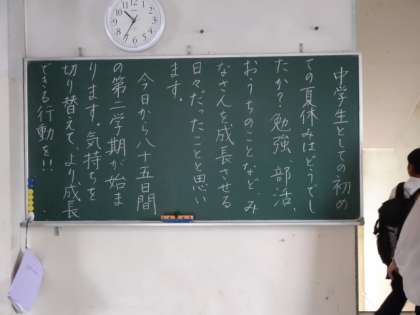 中学生としての初め
ての夏休みはどうでし
たか？勉強、部活、
おうちのことなど、み
なさんを成長させる
日々だったことと思い
ます。
今日から八十五日間
の第二学期が始ま
ります。気持ちを
切り替えて、より成長
できる行動を!!